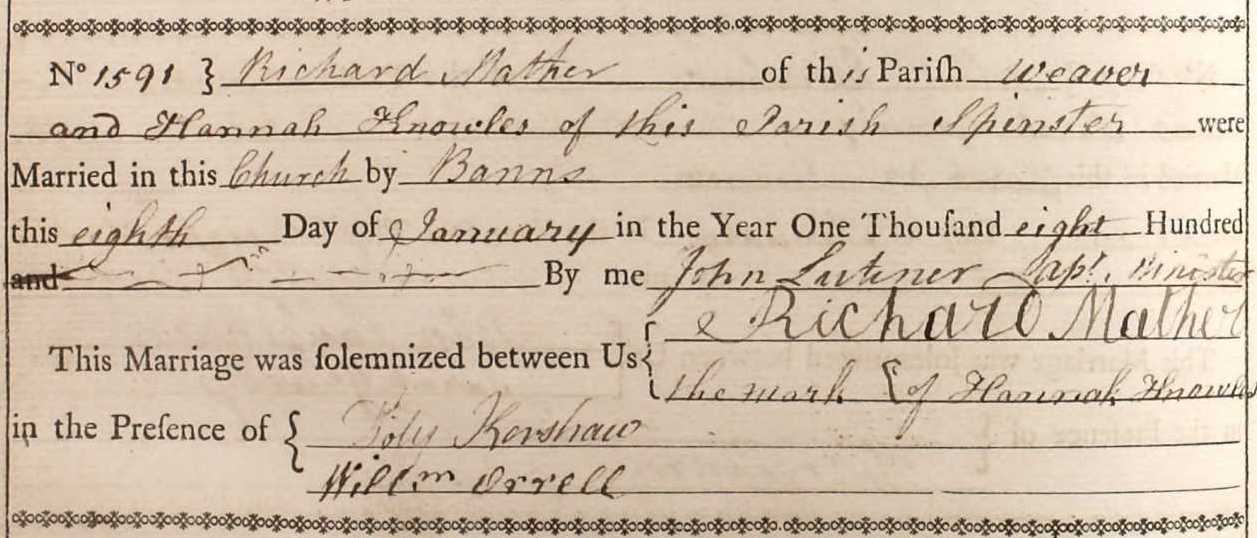 Nº 1591 } Richard Mather of this Pariſh Weaver
and Hannah Knowles of this Parish Spinster were
Married in this Church by Banns
this eighth Day of January in the Year One Thouſand eight Hundred
and By me John Lutener Minister
This Marriage was ſolemnized between Us { Richard Mather
the mark of Hannah Knowles
in the Preſence of { Kershaw
Willm Orrell